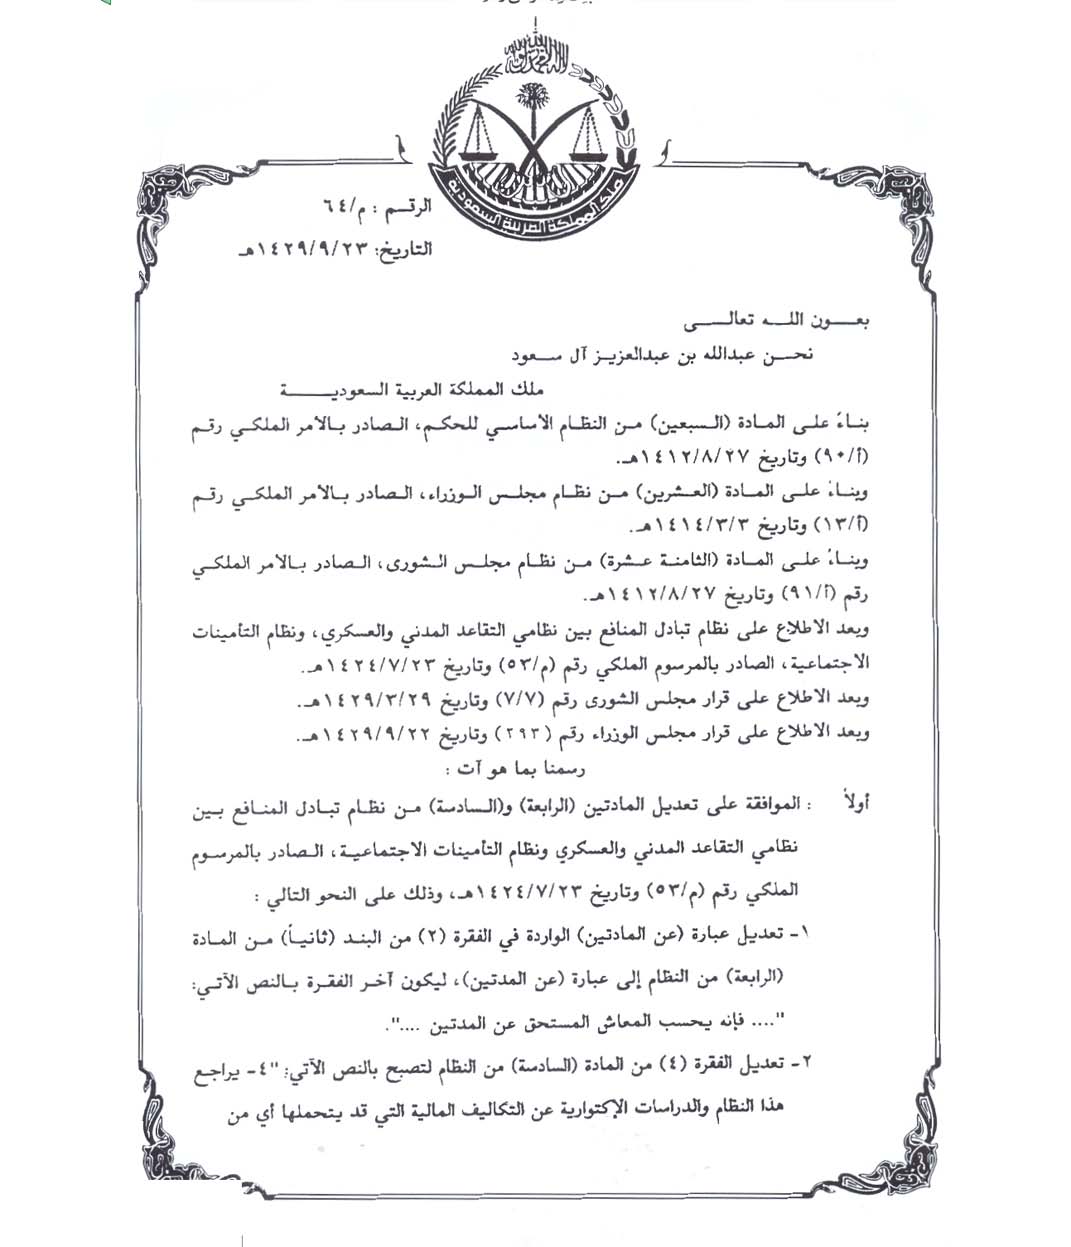 لا إله إلا الله محمد رسول الله
ملك المملكة العربية السعودية
الرقم : م/٦٤
التاريخ: ١٤٢٩/٩/٢٣هـ
بعون الله تعالى
نحن عبدالله بن عبدالعزيز آل سعود
ملك المملكة العربية السعودية
بناءً على المادة (السبعين) من النظام الأساسي للحكم، الصادر بالأمر الملكي رقم
(أ/٩٠) وتاريخ ١٤١٢/٨/٢٧هـ.
وبناءً على المادة (العشرين) من نظام مجلس الوزراء، الصادر بالأمر الملكي رقم
(أ/١٣) وتاريخ ١٤١٤/٣/٣هـ.
وبناءً على المادة (الثامنة عشرة) من نظام مجلس الشورى، الصادر بالأمر الملكي
رقم (أ/٩١) وتاريخ ١٤١٢/٨/٢٧هـ.
وبعد الاطلاع على نظام تبادل المنافع بين نظامي التقاعد المدني والعسكري، ونظام التأمينات
الاجتماعية، الصادر بالمرسوم الملكي رقم (م/٥٣) وتاريخ ١٤٢٤/٧/٢٣هـ.
وبعد الاطلاع على قرار مجلس الشورى رقم (٧/٧) وتاريخ ١٤٢٩/٣/٢٩هـ.
وبعد الاطلاع على قرار مجلس الوزراء رقم (٢٩٣) وتاريخ ١٤٢٩/٩/٢٢هـ.
رسمنا بما هو آت :
أولاً : الموافقة على تعديل المادتين (الرابعة) و(السادسة) من نظام تبادل المنافع بين
نظامي التقاعد المدني والعسكري ونظام التأمينات الاجتماعية، الصادر بالمرسوم
الملكي رقم (م/٥٣) وتاريخ ١٤٢٤/٧/٢٣هـ، وذلك على النحو التالي :
١- تعديل عبارة (عن المادتين) الواردة في الفقرة (٢) من البند (ثانياً) من المادة
(الرابعة) من النظام إلى عبارة (عن المدتين)، ليكون آخر الفقرة بالنص الآتي:
".... فإنه يحسب المعاش المستحق عن المدتين ....".
٢- تعديل الفقرة (٤) من المادة (السادسة) من النظام لتصبح بالنص الآتي: "٤- يراجع
هذا النظام والدراسات الإكتوارية عن التكاليف المالية التي قد يتحملها أي من